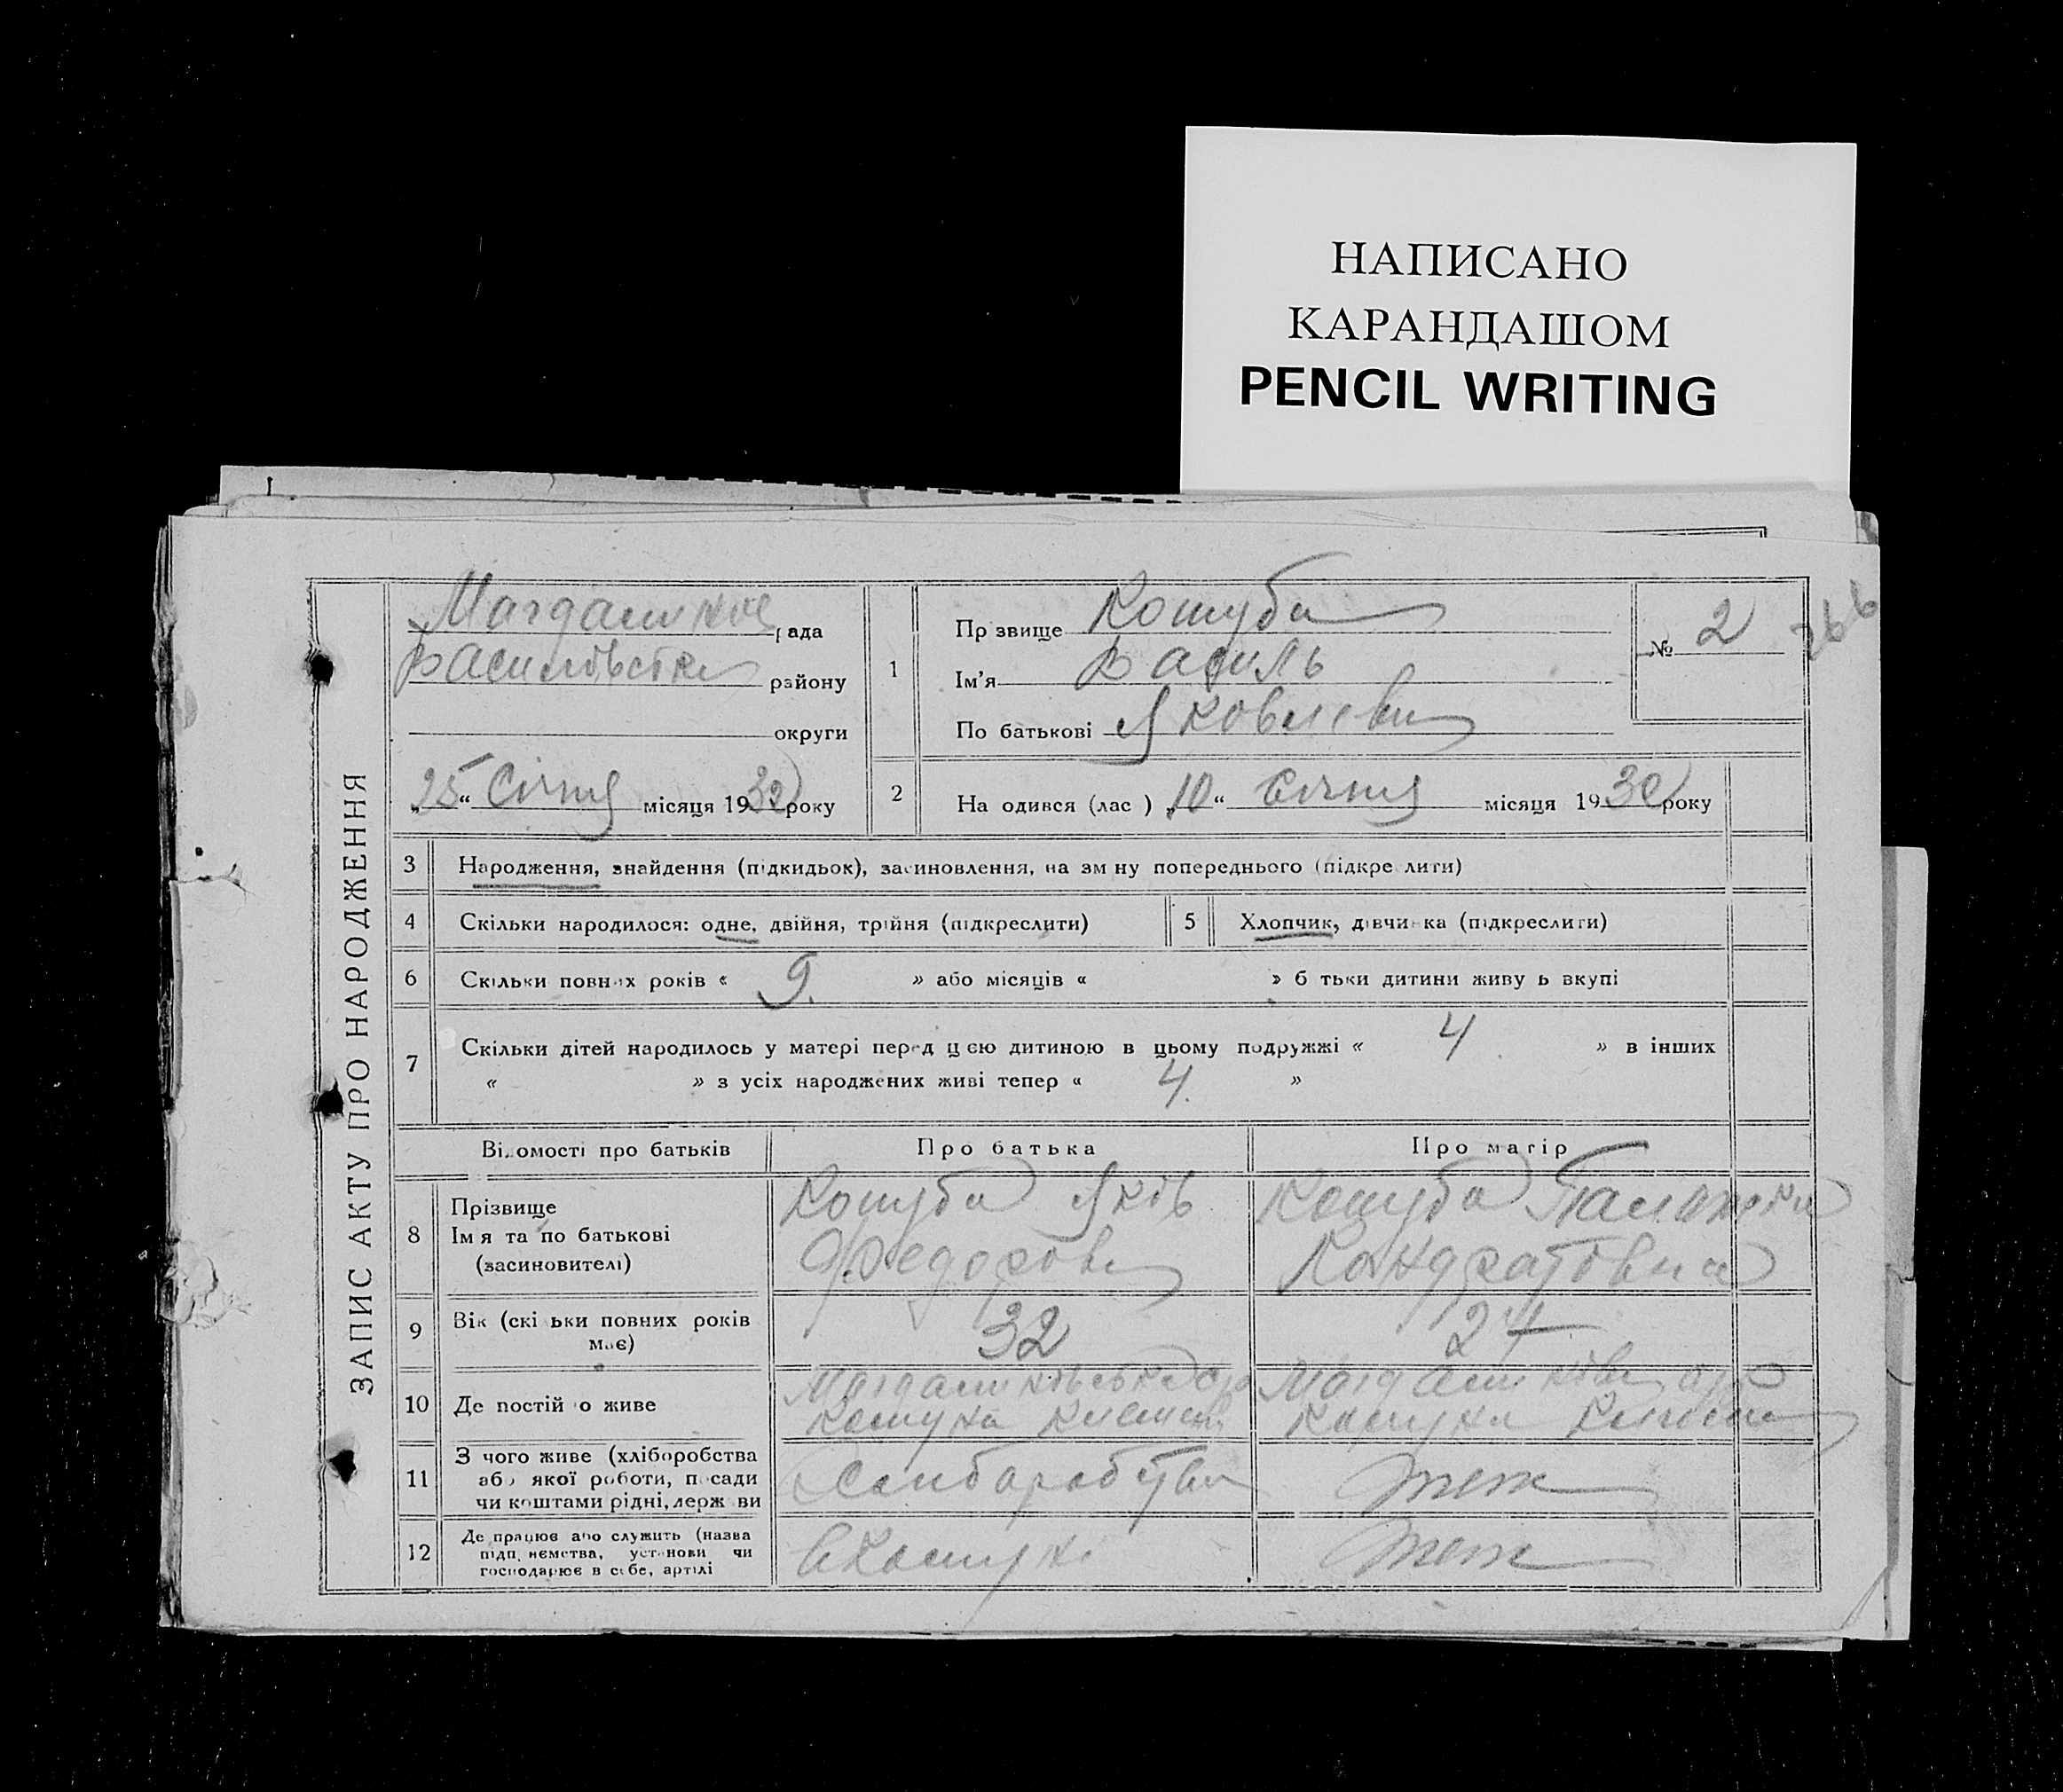 НАПИСАНО
КАРАНДАШОМ
PENCIL WRITING
ЗАПИС АКТУ ПРО НАРОДЖЕННЯ
рада
району
округи
„25“ Січня місяця 1932 року
1
Прзвище Кошуба
Ім'я Василь
По батькові Яковлеви
№ 2
266
2 Наодився (лас ) „10“ Січня місяця 1930 року
3 Народження, знайдення (підкидьок), засиновлення, на змну попереднього (підкрелити)
4 Скільки народилося: одне, двійня, трійня (підкреслити) 5 Хлопчик, дівчинка (підкреслити)
6 Скільки повних років « 9. » або місяців « » бтьки дитини живуь вкупі
7 Скільки дітей народилось у матері перед цєю дитиною в цьому подружжі « 4 » в інших
« » з усіх народжених живі тепер « 4. »
Відомості про батьків Про батька Про матір
8 Прізвище
Імя та по батькові
(засиновителі)
Кошуба Яків
Федорови
Кошуба Палажка
Кондратовна
9 Вік (скіьки повних років
має)
32
24
10 Де постійо живе
11 З чого живе (хліборобства
або якої роботи, посади
чи коштами рідні, держави
теж
12 Де працює або служить (назва
підпиємства, установи чи
господарює в себе, артілі
теж